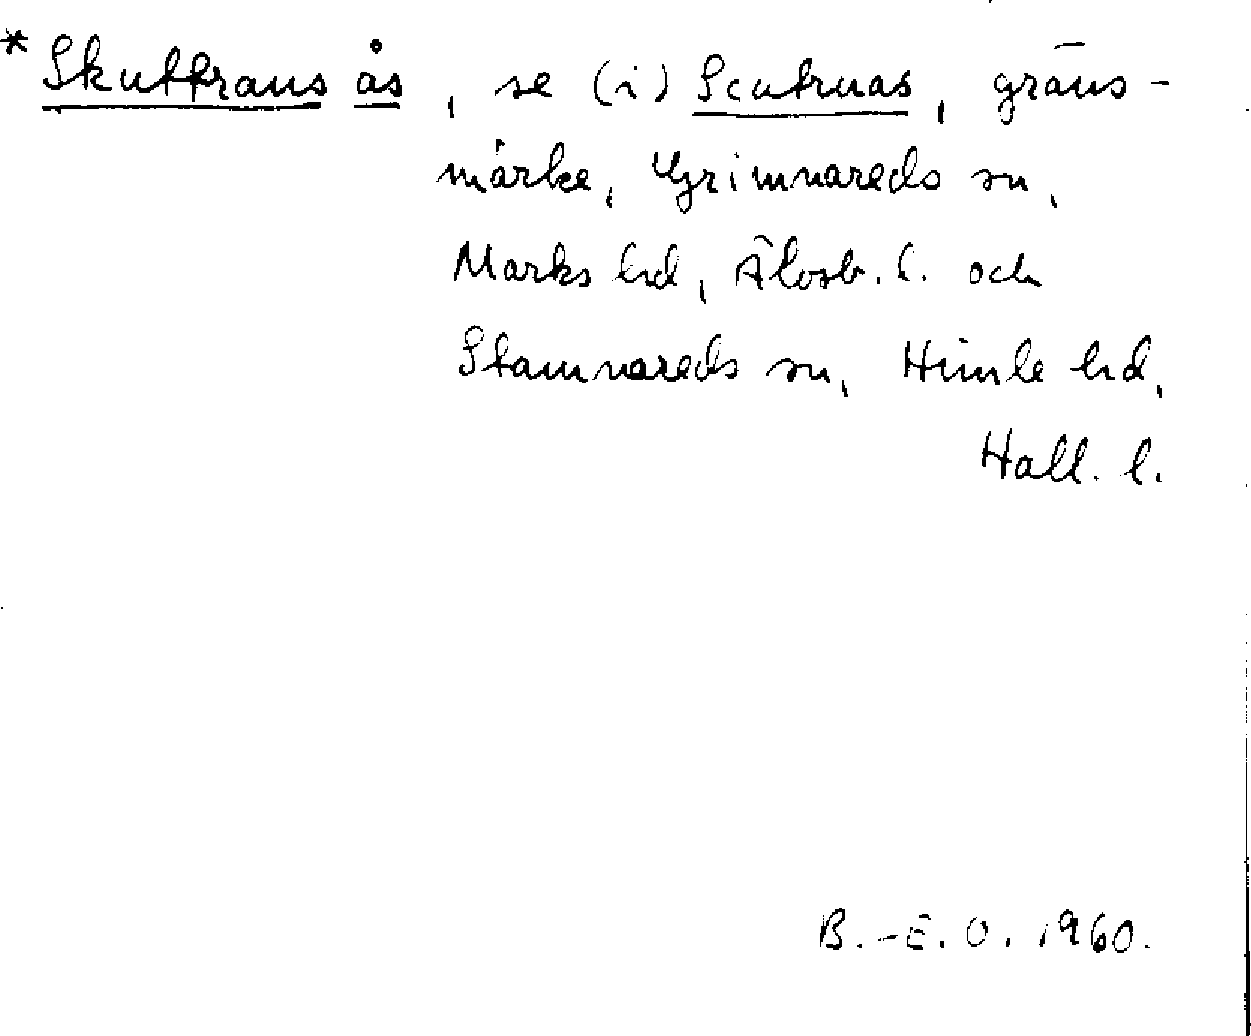 *Skuttrans ås, se (i) Scutruas, gräns-
märke, Grimmareds sn,
Marks hd, Älvsb. l. och
Stamnareds sn, Himle hd,
Hall. l.
B.-E. O. 1960.